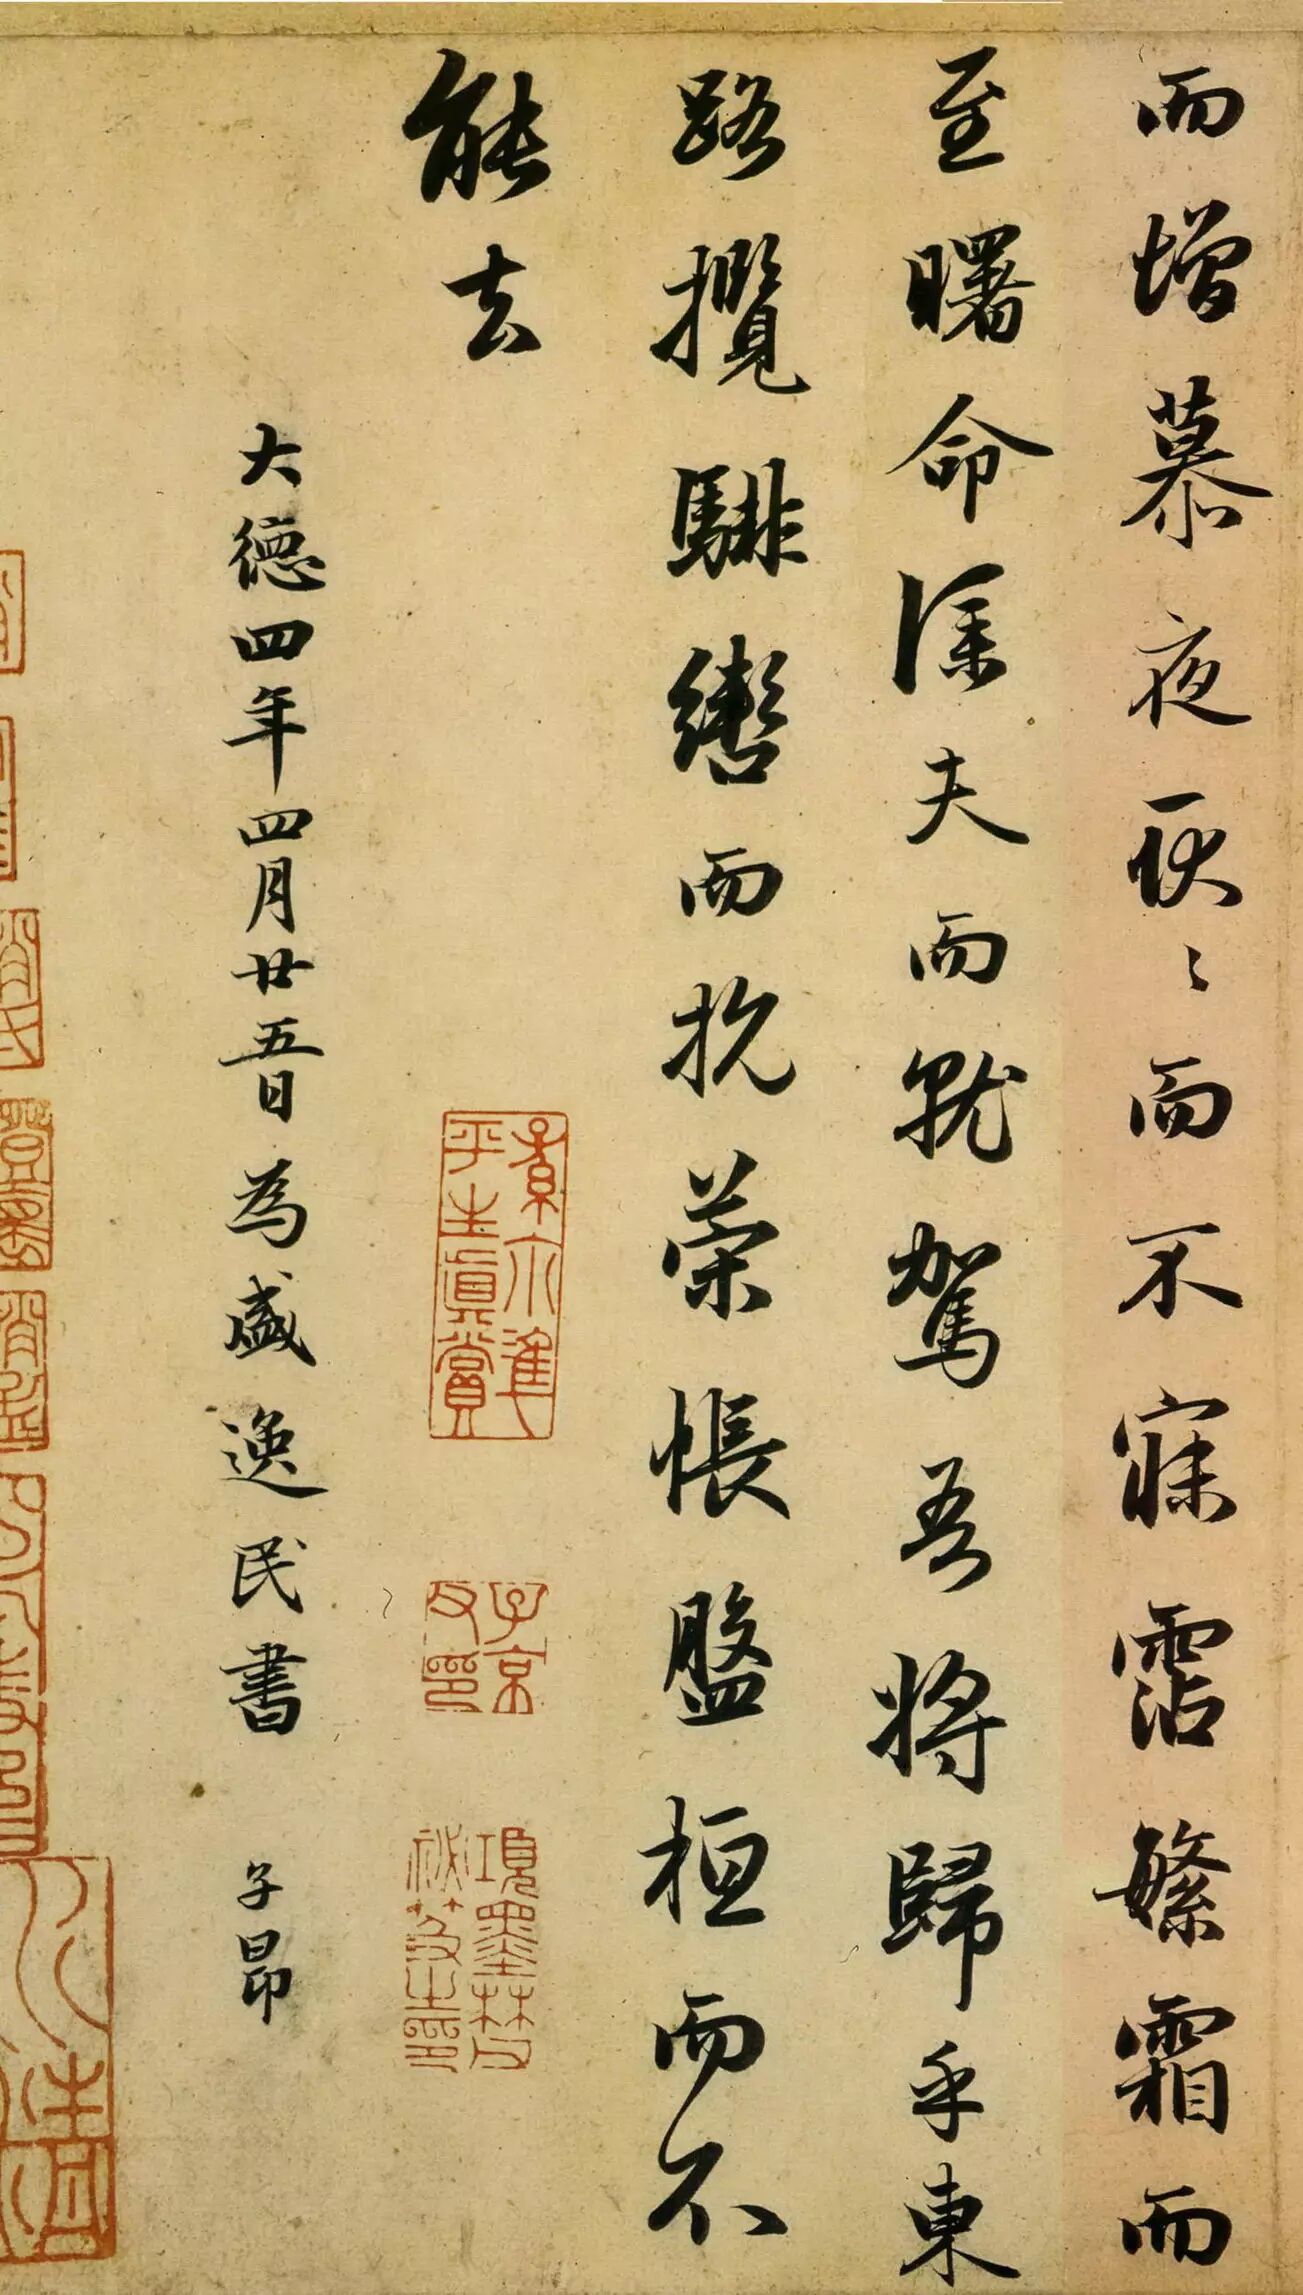 而增慕夜耿〻而不寐霑繁霜而
至曙命僕夫而就駕吾將歸乎東
路攬騑轡而抗策悵盤桓而不
能去
平生真賞
子京父印
項墨林父祕笈之印
大德四年四月廿五日為盛逸民書 子昂